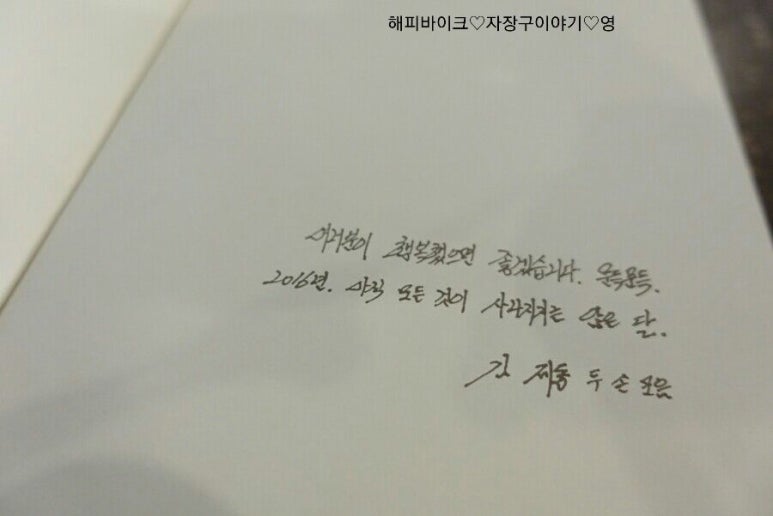 해피바이크♡자장구이야기♡영
여러분이 행복했으면 좋겠습니다. 문득문득.
2016년. 아직 모든 것이 사라지지는 않은 달.
김제동 두 손 모음